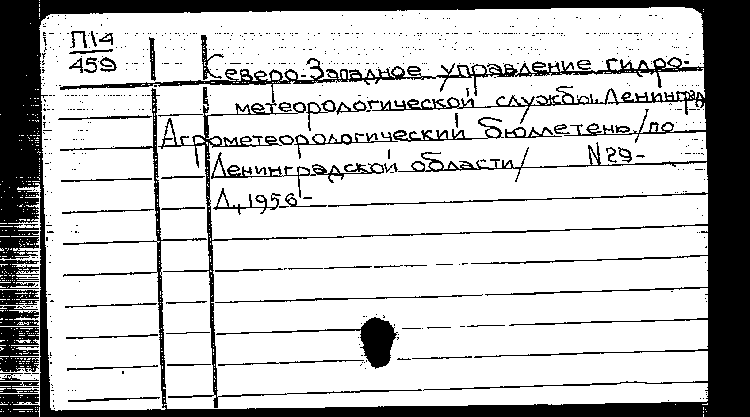 П14
459
Северо-Западное управление гидро-
метеорологической службы. Ленинград
Агрометеорологический бюллетень /по
Ленинградской области/ N29-
Л., 1956-